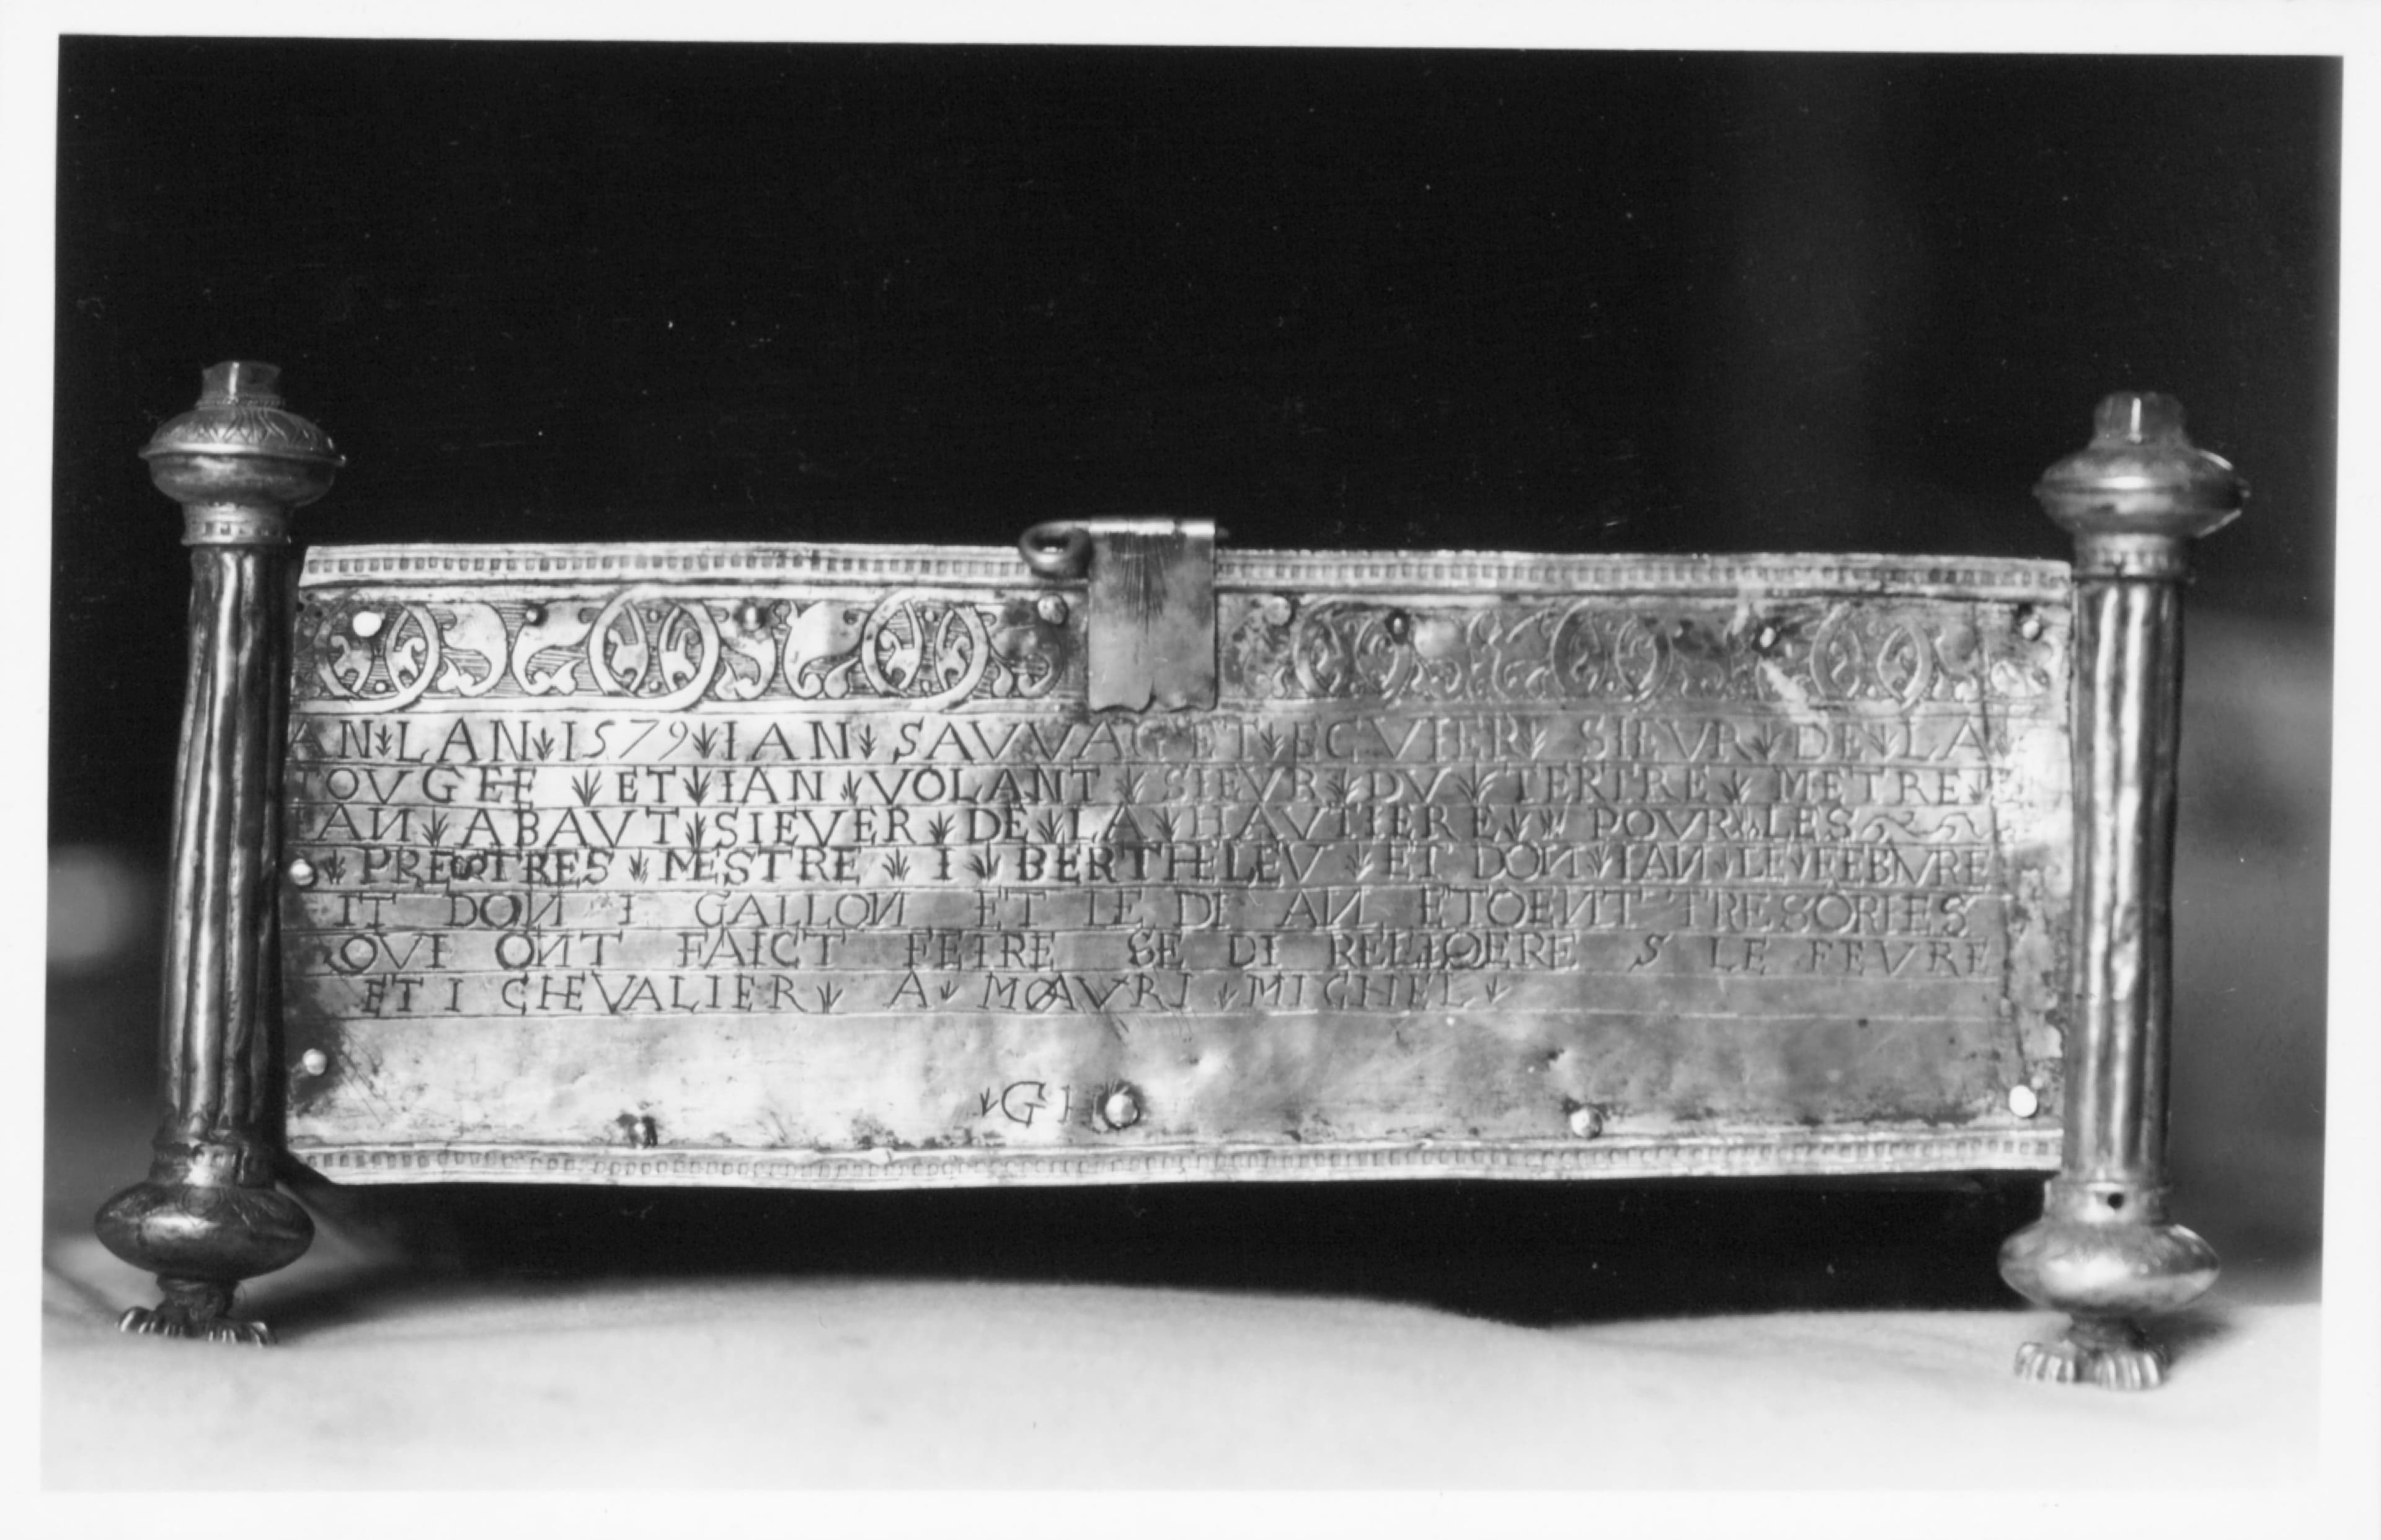 AN LAN 1579 IAN SAVVAGET ECVIER SIEVR DE LA
TOVGEE ET IAN VOLANT SIEVR DV TERTRE METRE
IAN ABAVT SIEVER DE LA HAVTIERE POVR LES
PRESTRES MESTRE I BERTHELEV ET DON IAN LE FEBVRE
IT DON I GALLON ET LE DI AN ETOENT TRESORIES
QVI ONT FAICT FEIRE SE DI RELIQERE S LE FEVRE
ET I CHEVALIER A MAVRI MICHEL
GI